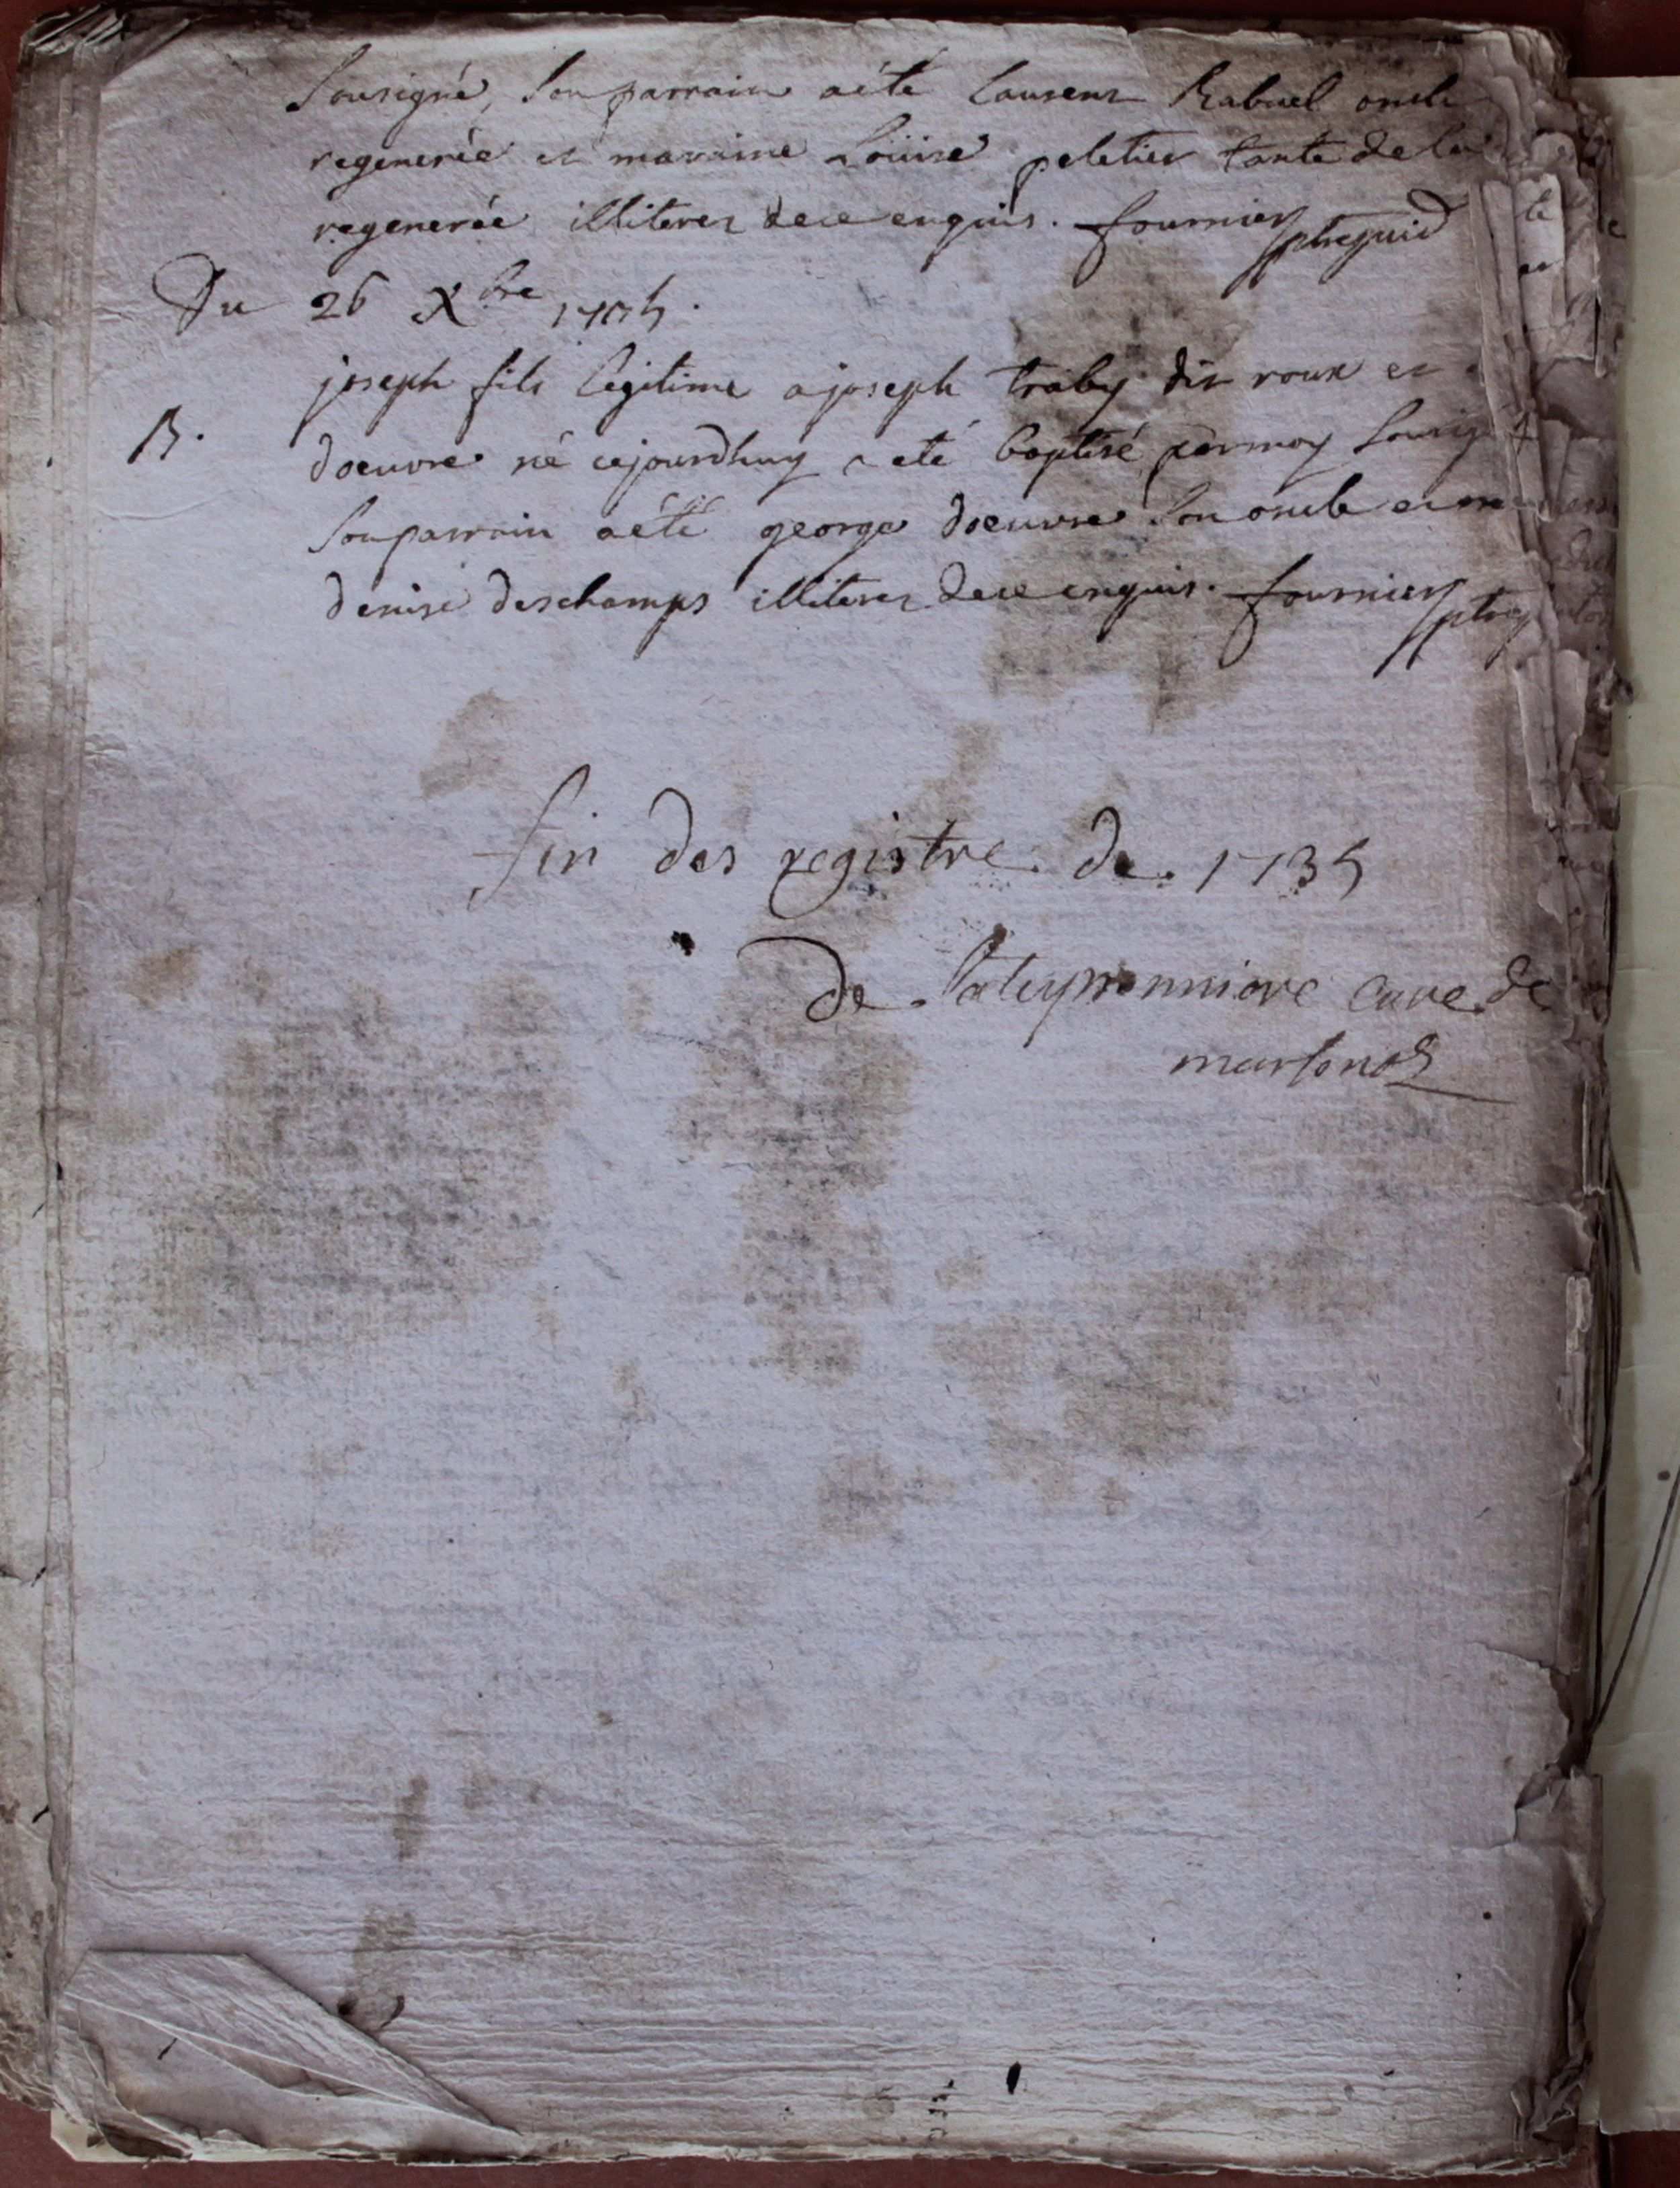 Sousigné, son parrain aété Laurent Rabuel oncle
regenerée et maraine Loüise peletier tante de la
regenerée illiteres de ce enquis. fournier ptre
Du 26 Xbre 1735.
joseph fils légitime a joseph traby dit roux et
B. doeuvre né cejourdhuy a eté baptisé par moy Sousig
Son parrain aété george doeuvre Son oncle et
denise deschamps illiteres de ce enquis. fournier ptre
fin des registre de 1735
de curé de
marsonas